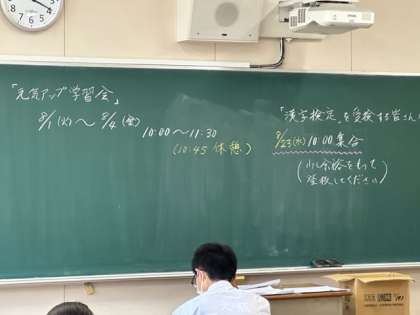 「元気アップ学習会」
8/1(火)～8/4(金)
10:00～11:30
(10:45 休憩)
「漢字検定」を受検する皆さん
8/23(水)10:00集合
(少し余裕をもって
登校してください)